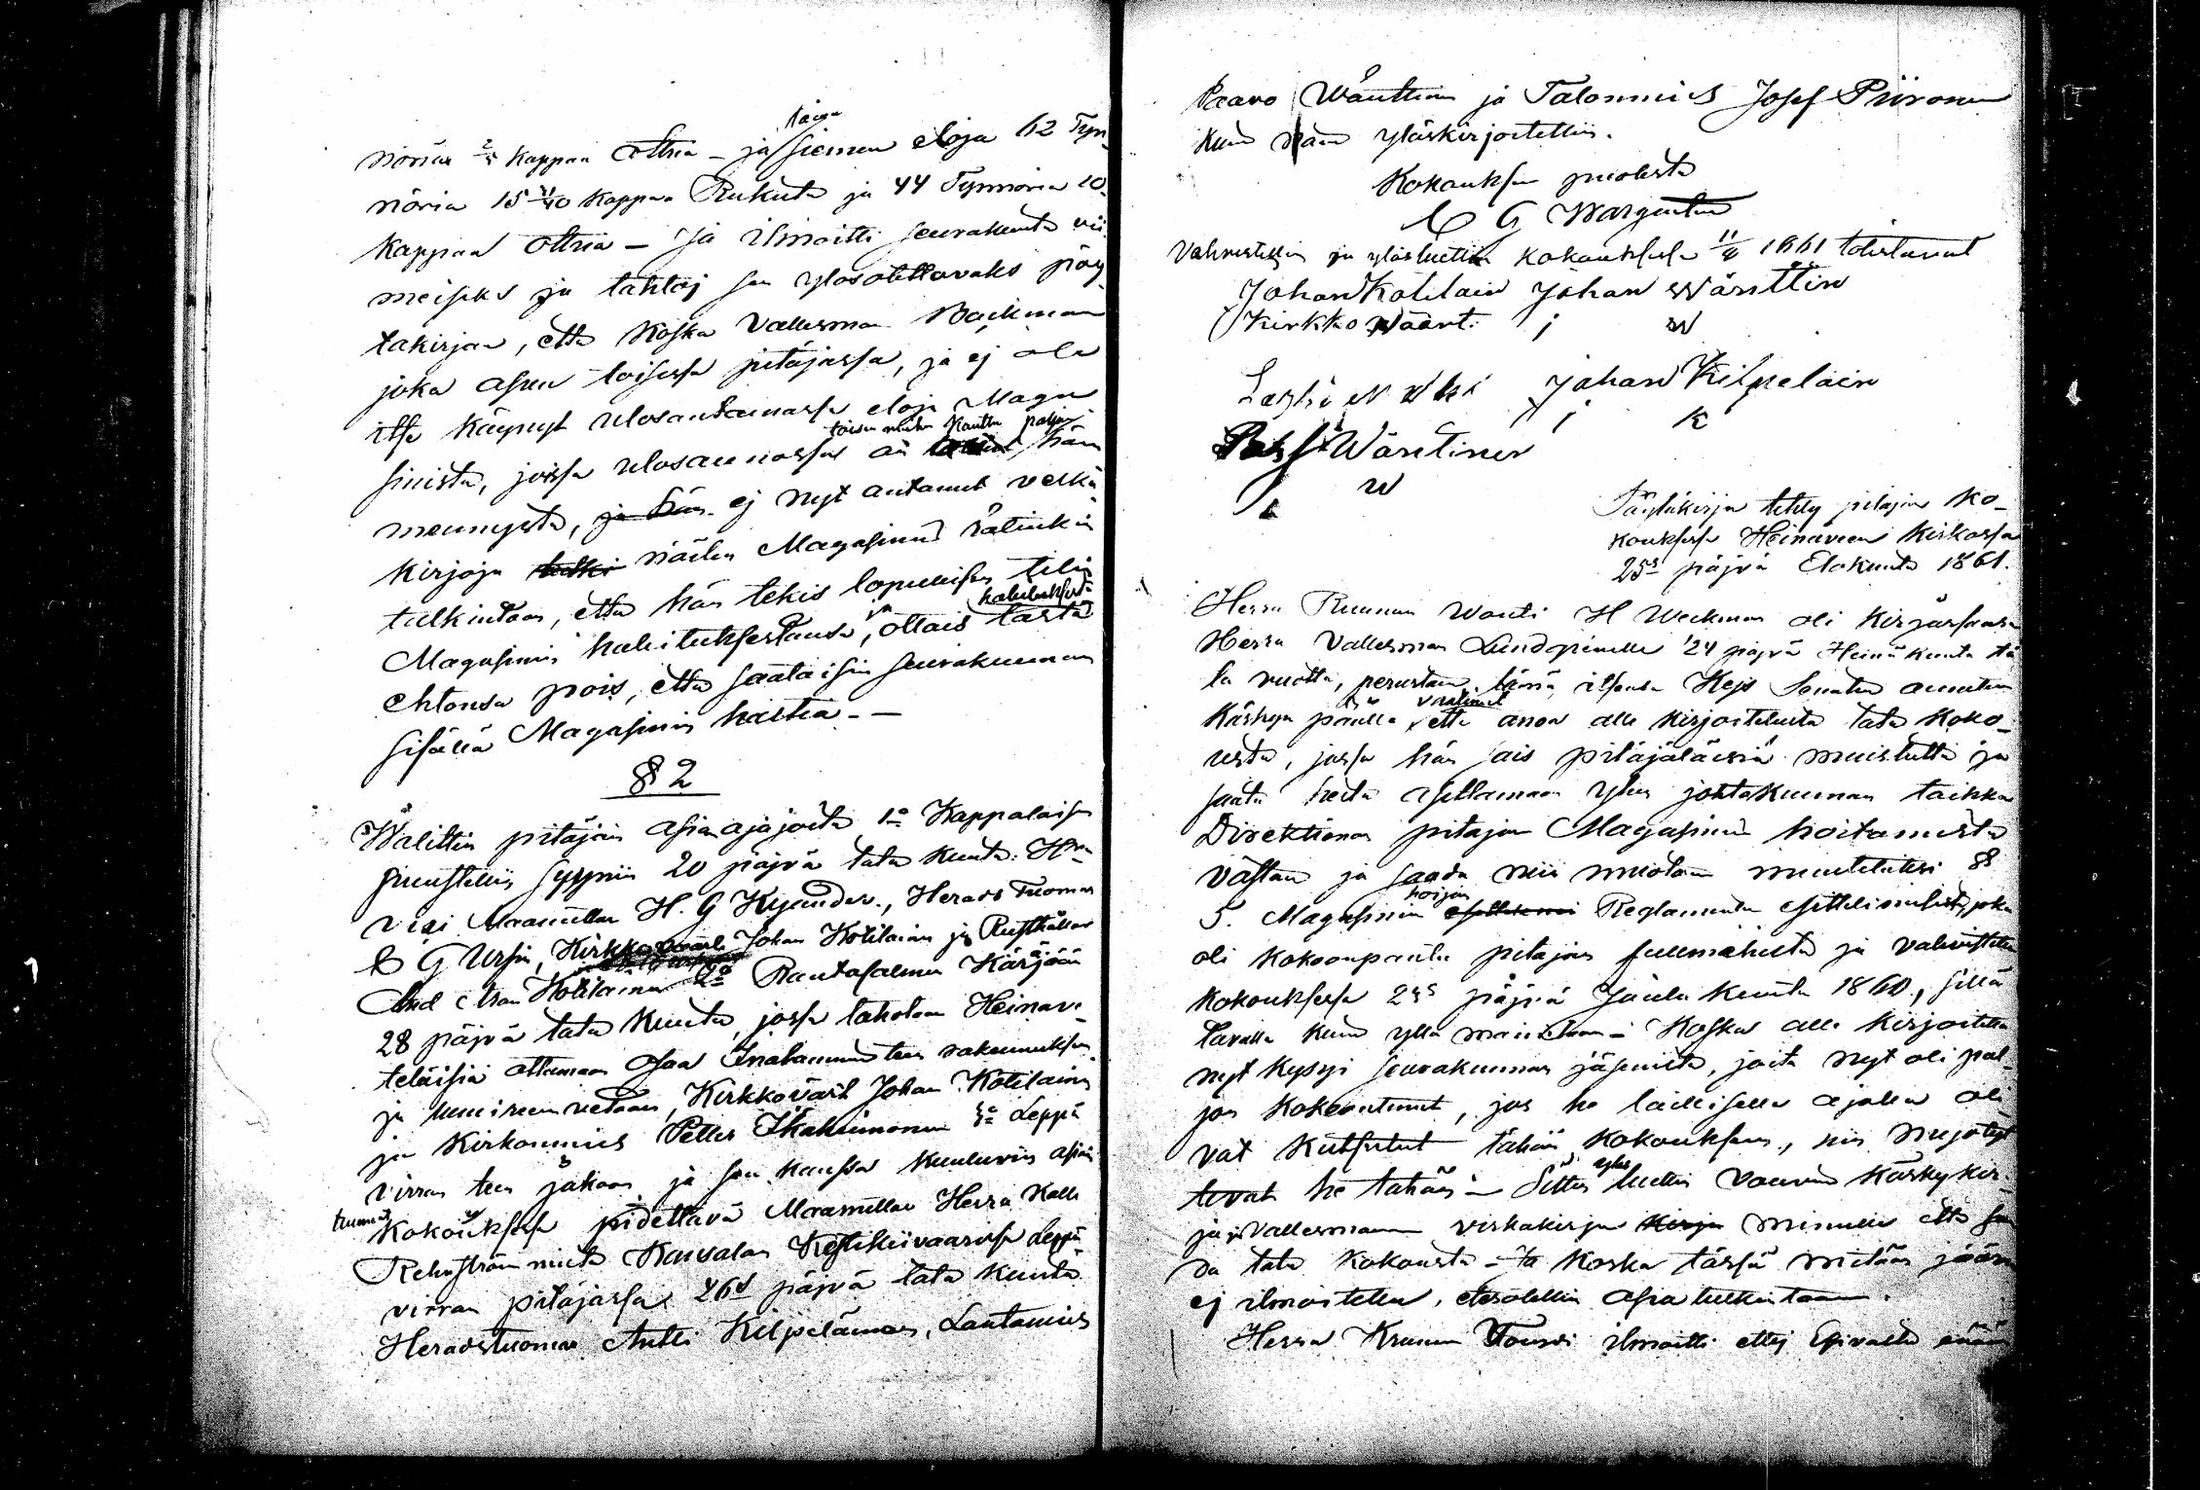 nöriä 2/5 kappaa Ottria – ja siemen eloja 62 Tyn-
nöriä 15 11/40 kappaa Rukiita ja 44 Tynnöriä 10
kappaa Ottria – Ja ilmoitti seurakunta vii
meiseks ja tahtoj sen ylösotettavaks pöy
takirjaa, että koska Vallesman Backman
joka asuu toisessa pitäjässä, ja ej ole
itse käynyt ulosantamassa eloja Maga
sinista, joissa ulosannossa on toisen miehen kautta paljo hän
mennyttä, ja hän ej nyt antanut verka
kirjoja näiden Magasinin
tutkintoon, että hän tekis lopullisen tilin
Magasinin hallituksestansa, ottais tästä
ehtonsa pois, että saataisiin seurakunnan
sisällä Magasinin hoitia. –
§ 2
Walittin pitäjän asianajajoita 1o Kappalaisen
syyniin 20 päjvä tätä kuuta. Herra
Maamittar H. G Kyander., Herads Tuomar
C G Ursin, Kirkkovaart Johan Kotilainen ja Rusthållar
Kotilainen 2o Rautasalmen Käräjään
28 päjvä tätä kuuta, jossa tahotaan Heinäve
teläisiä ottamaan osaa tien rakennuksen
ja lumireen vetoon, Kirkkovärt Johan Kotilainen
ja Kirkonmies Petter Ikäheimonen 3o Leppä
virran tien jakoon ja sen kanssa kuuluviin asioin
Kokouksessa pidettävä Maamittar Herra Kalle
Rehnströmmiltä Kestikiivaarissa Leppä
virran pitäjässä 26s päjvä tätä kuuta
Heradstuomar Antti Kilpeläinen, Lautamies
Paavo Wänttinen ja Talonmies Josef Piironen
kuin näin yläskirjoitettiin.
Kokouksen puolesta
C G Wargentin
Vahvistettiin ja ylösluettiin kokouksessa 11/8 1861 todistavat
Johan Kotilain Johan Wänttin
Kirkko Wäärt. j W
Johan Kilpeläin
j K
Wäntinen
W
Pöytäkirja tehty pitäjän ko-
kouksessa Heinäveen Kirkossa
25s päjvä Elokuuta 1861.
Herra Ruunun Wouti H Weckman oli kirjassansa
Herra Vallesman Lindqvinille 24 päjvä Heinä kuuta tä
tä vuotta, perustain tämä itsensä Kejs Senatin annetun
käskyn päälle, että anon alle kirjoitetulta tätä koko
usta, jossa hän sais pitäjäläisiä muistutta ja
saata heitä asettamaan yhen johtokunnan taikka
Direktionon pitäjän Magasinin hoitamista
vasten ja saada niin muotoon muutetuksi §§
5. Magasinin hoijon Reglamentin esittelimisest, joka
oli kokoonpantu pitäjän fullmähistä ja vahvistettu
kokouksessa 2ss päjvä Joulu kuuta 1860, sillä
tavalla kuin yllä mainitaan – Koska alle kirjoitettu
nyt kysyi seurakunnan jäseniltä, joita nyt oli pal-
jon kokoontunut, jos he laillisella ajalla oli
vat kutsutut tähän kokouksen, niin myötyt
tivat he tähän – Sitten yles luettiin Voudin käskykir-
ja Vallesmann virkakirja minulle että saa
da tätä kokousta – Ja koska tässä mitään jään
ej ilmoitettu, etesotettin asia tutkintoon.
Herra Kruunun Vouti ilmoitti ettej Esivalta enään